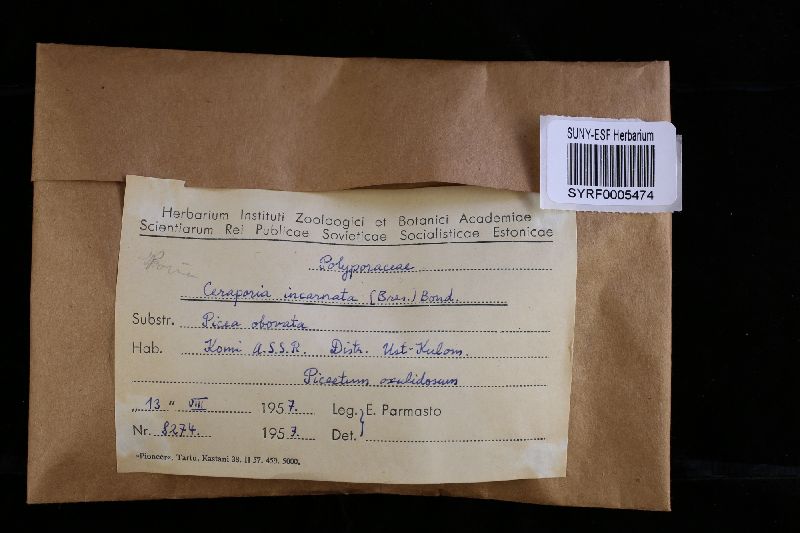 SUNY-ESF Herbarium
SYRF0005474
Herbarium Instituti Zooloogici et Botanici Academiae
Scientiarum Rei Publicae Sovieticae Socialisticae Estonicae
Poria
Polyporaceae
Ceraporia incarnata (Bres.) Bond.
Substr. Picea obovata
Hab. Komi A.S.S.R. Distr. Ust-Kulom.
Piceetum oxalidosum
„13" VIII 1957. Leg. E. Parmasto
Nr. 8274. 1957. Det.
«Pioneer», Tartu, Kastani 38. II 57. 459. 5000.